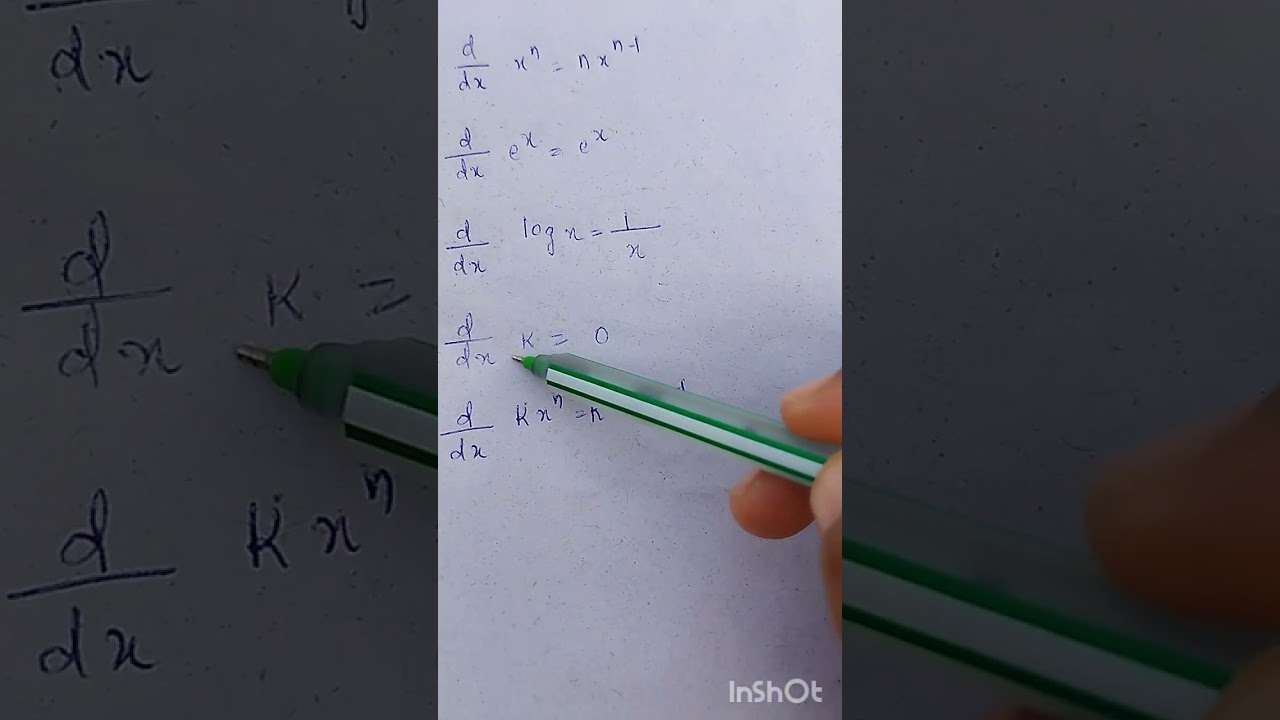 d/dx xⁿ = nxⁿ⁻¹
d/dx eˣ = eˣ
d/dx log x = 1/x
d/dx K = 0
d/dx K xⁿ = K
InShOt